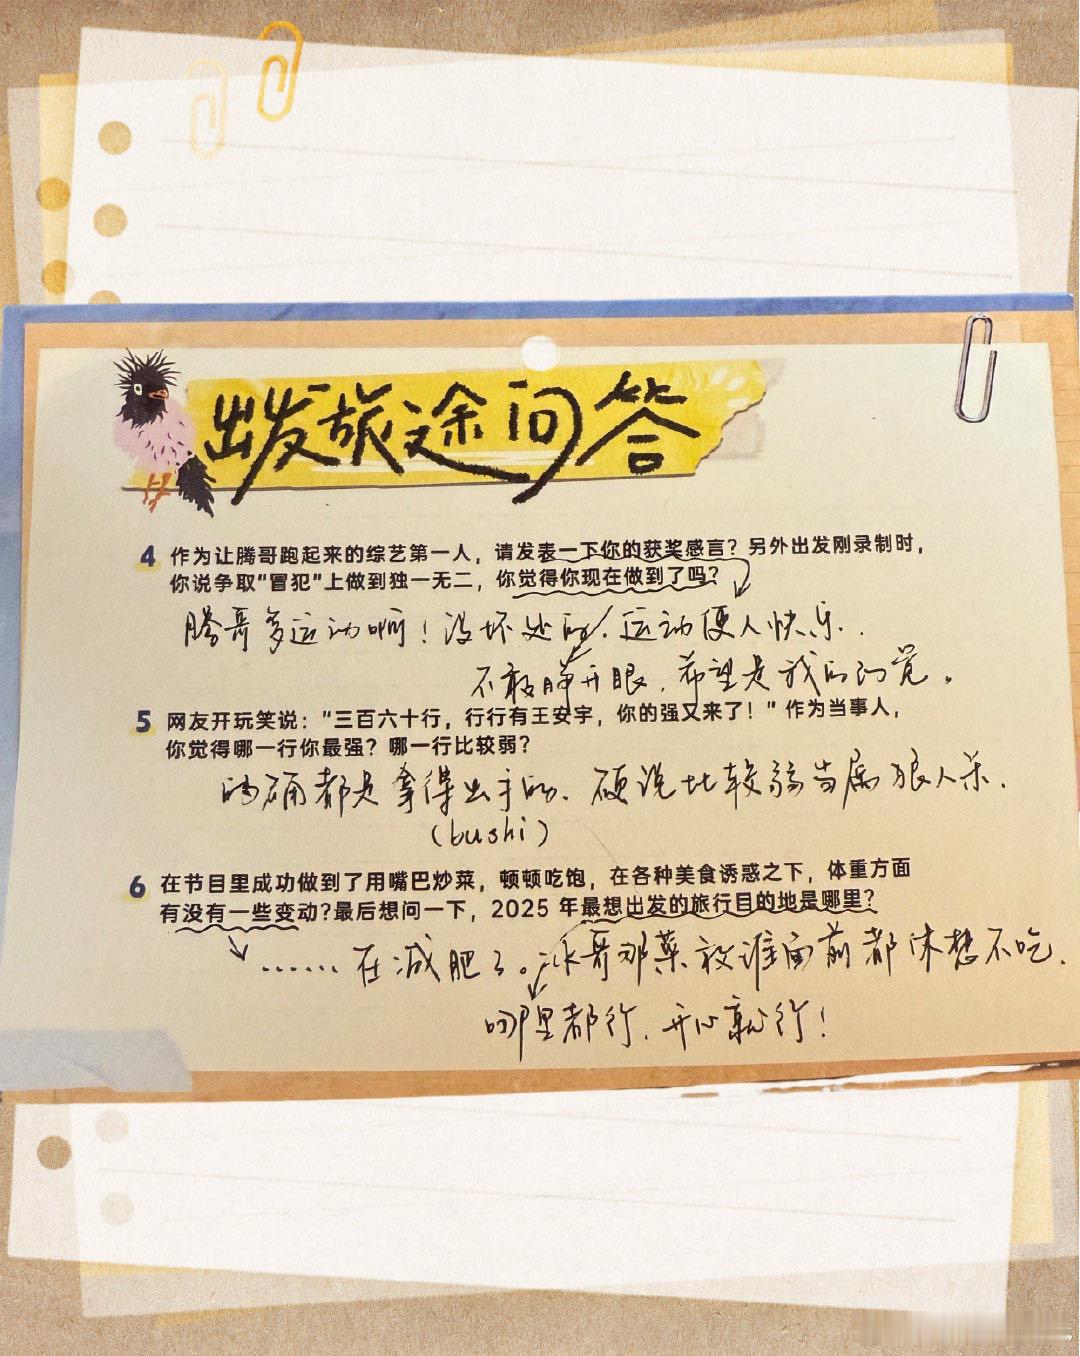 出发旅途问答
4 作为让腾哥跑起来的综艺第一人，请发表一下你的获奖感言？另外出发刚录制时，
你说争取“冒犯”上做到独一无二，你觉得你现在做到了吗？
腾哥多运动啊！没坏处的，运动使人快乐．
不敢睁开眼，希望是我的幻觉。
5 网友开玩笑说：“三百六十行，行行有王安宇，你的强又来了！”作为当事人，
你觉得哪一行你最强？哪一行比较弱？
的确都是拿得出手的、硬说比较弱当属狼人杀．
（bushi）
6 在节目里成功做到了用嘴巴炒菜，顿顿吃饱，在各种美食诱惑之下，体重方面
有没有一些变动？最后想问一下，2025 年最想出发的旅行目的地是哪里？
……在减肥了。冰哥那菜放谁面前都休想不吃．
哪里都行．开心就行！